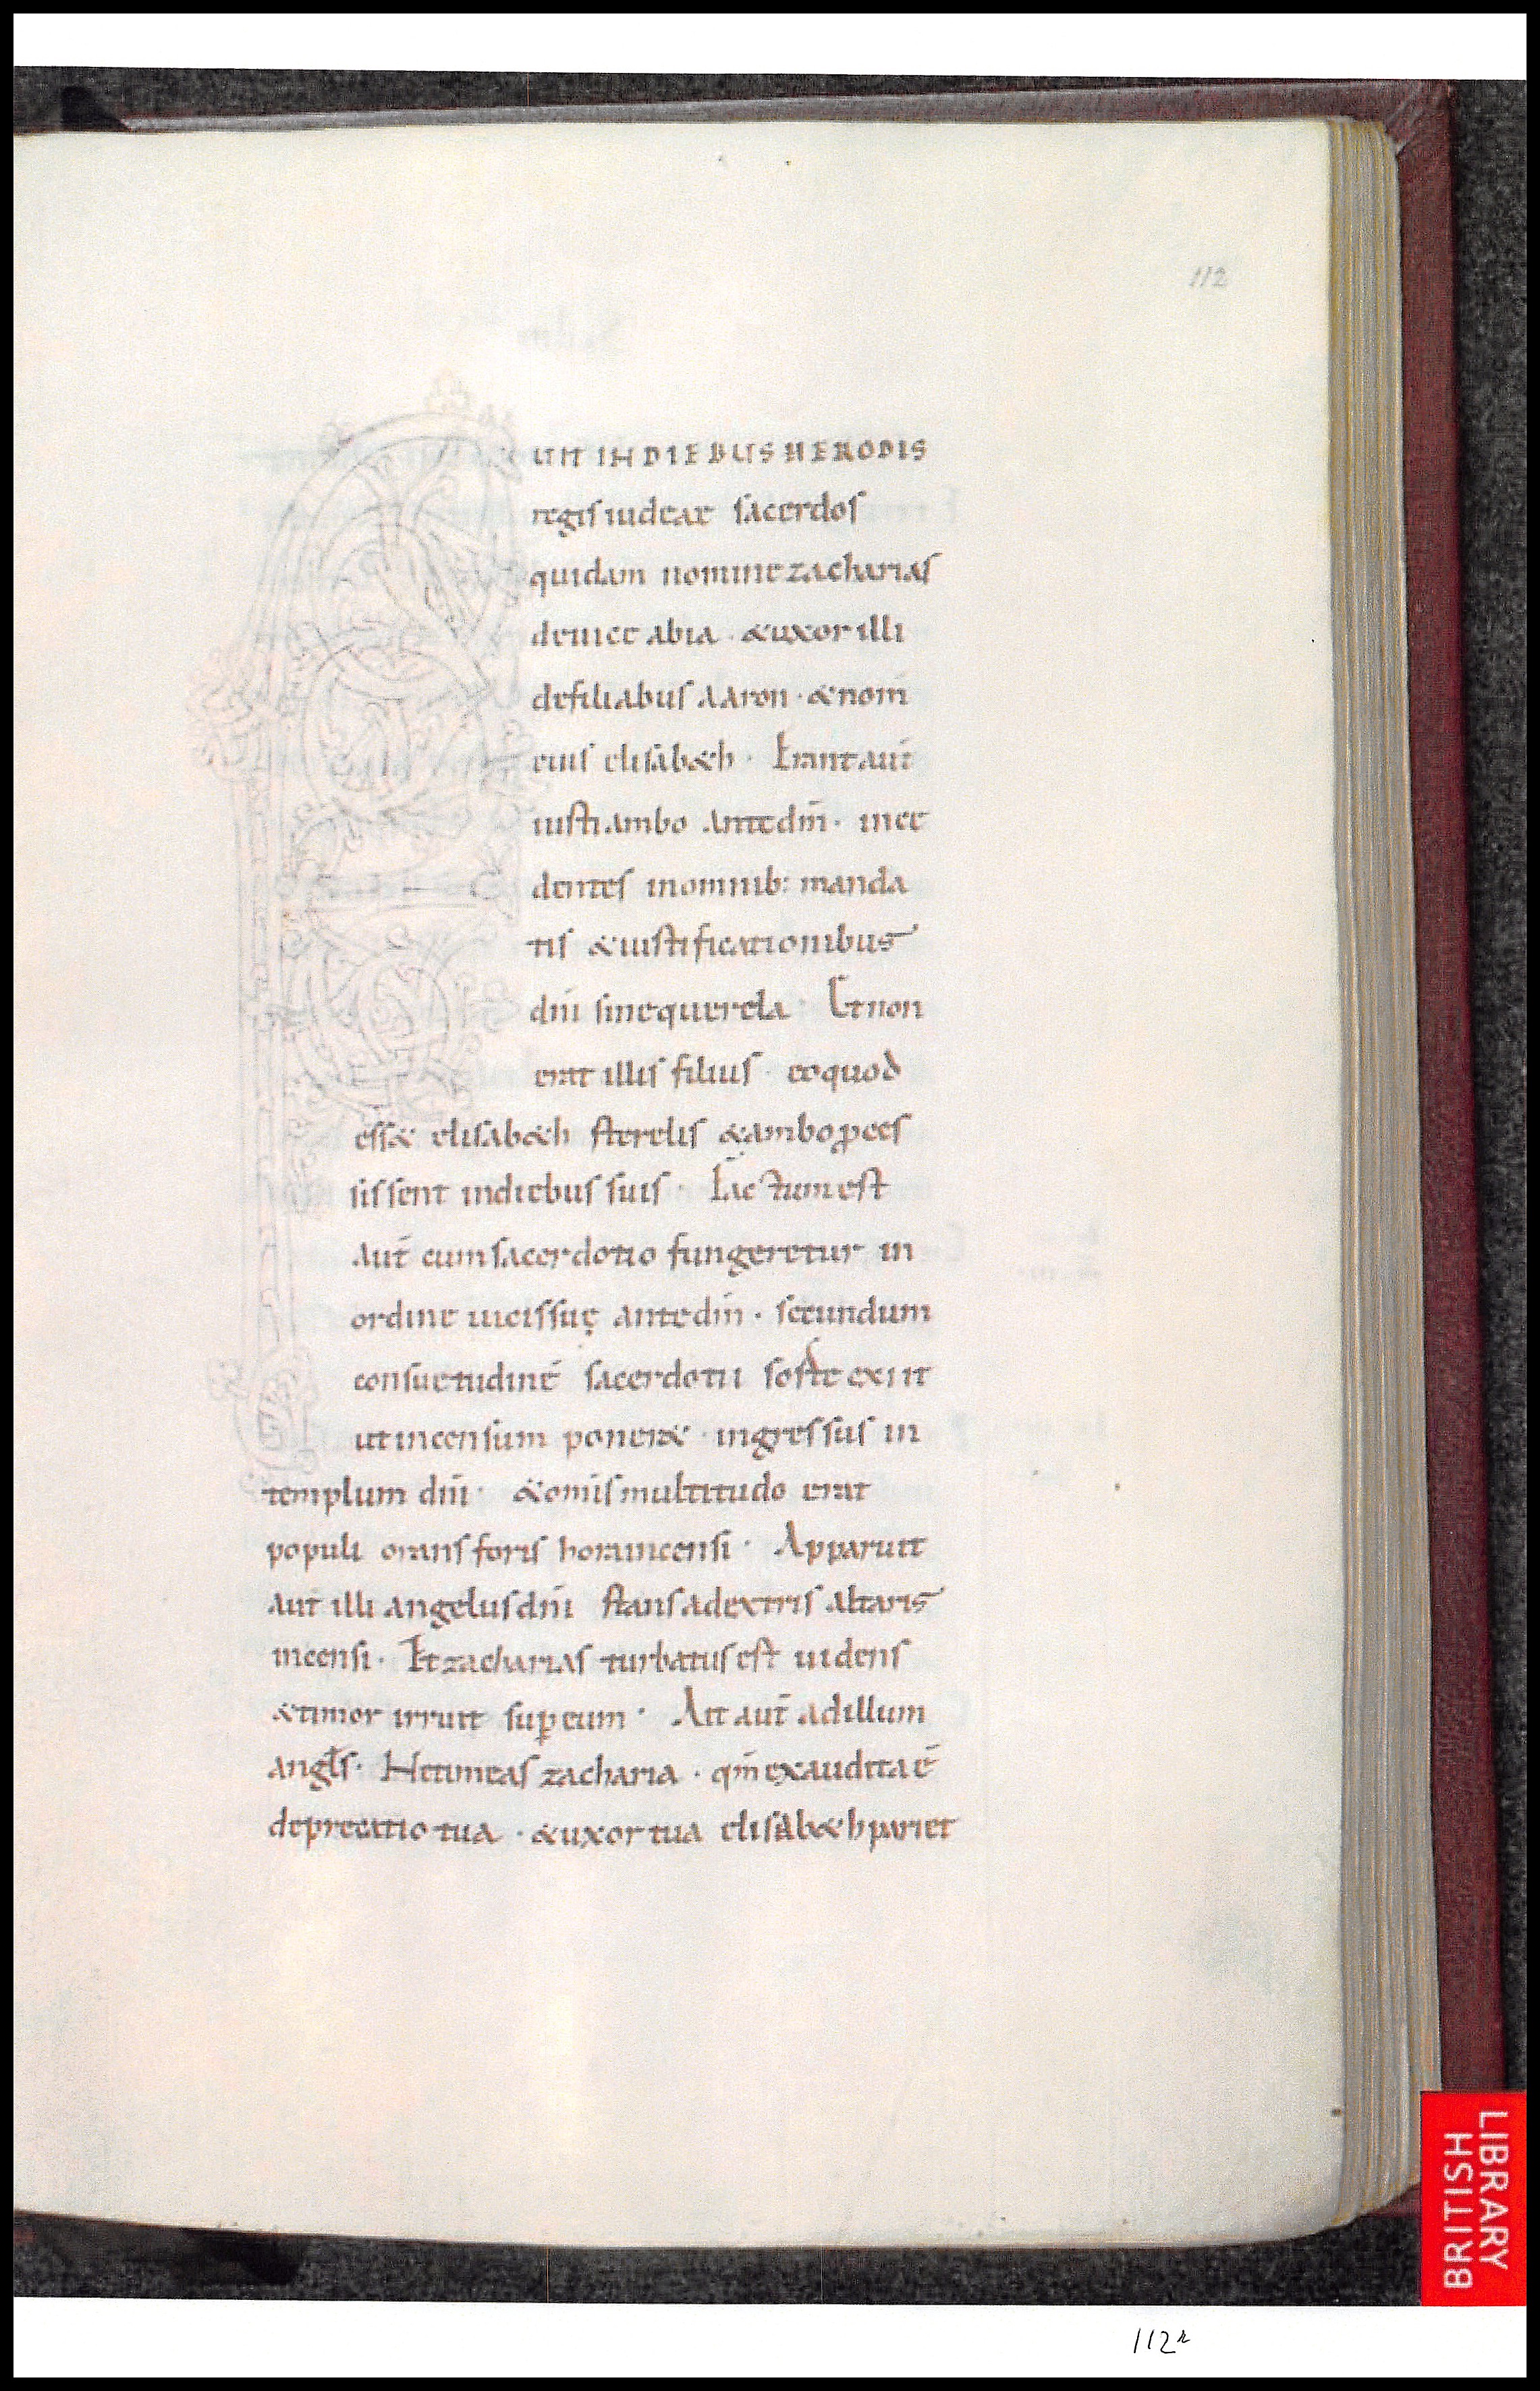 112
UIT IN DIEBUS HERODIS
regis iudeae sacerdos
quidam nomine zacharias
deuice abia · &uxor illi
defiliabus aaron · &nom̄
eius elisab&h · Erant aut̄
iusti ambo ante dm̄ · ince
dentes inomnib: manda
tis &iustificationibus
dni̅ sinequerela · Et non
erat illis filius · eoquod
ess& elisab&h sterelis &ambo ꝓces
sissent indiebus suis · Factum est
aut̄ cum sacerdotio fungeretur in
ordine uicis suę ante dm̄ · secundum
consuetudinē sacerdotii sorte exiit
ut incensum poner& · ingressus in
templum dni̅ · &omis̄ multitudo erat
populi orans foris hora incensi · Apparuit
aut̄ illi angelus dni̅ stans adextris altaris
incensi · Et zacharias turbatus est uidens
&timor irruit suꝑ eum · Ait aut̄ adillum
angls̄ · Ne timeas zacharia · qm̄ exaudita ē
deprecatio tua · &uxor tua elisab&h pariet
LIBRARY
BRITISH
112r